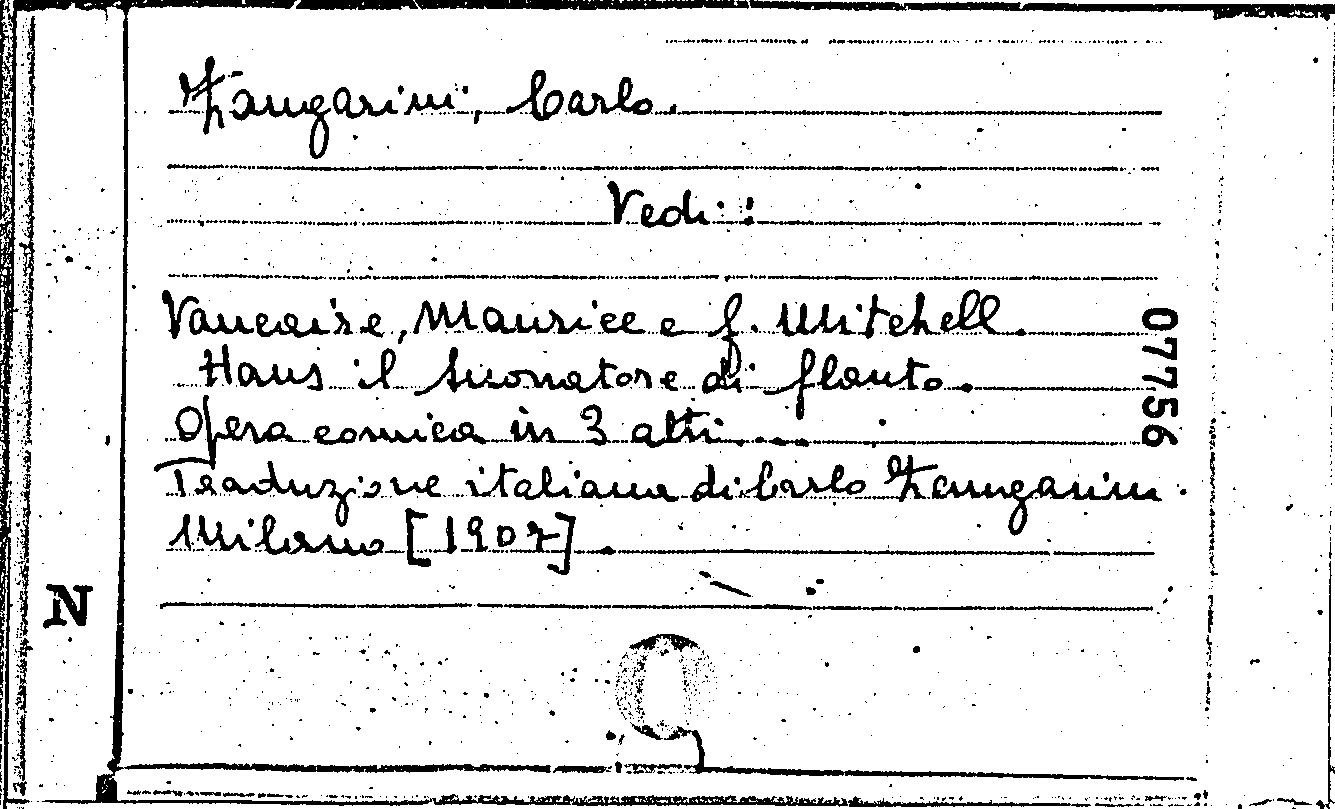 Zangarini, Carlo.
Vedi:
Vaucaire, Maurice e G. Mitchell.
Hans il Suonatore di flauto.
Opera comica in 3 atti....
Traduzione italiana di Carlo Zangarini.
Milano [1907].
07756
N